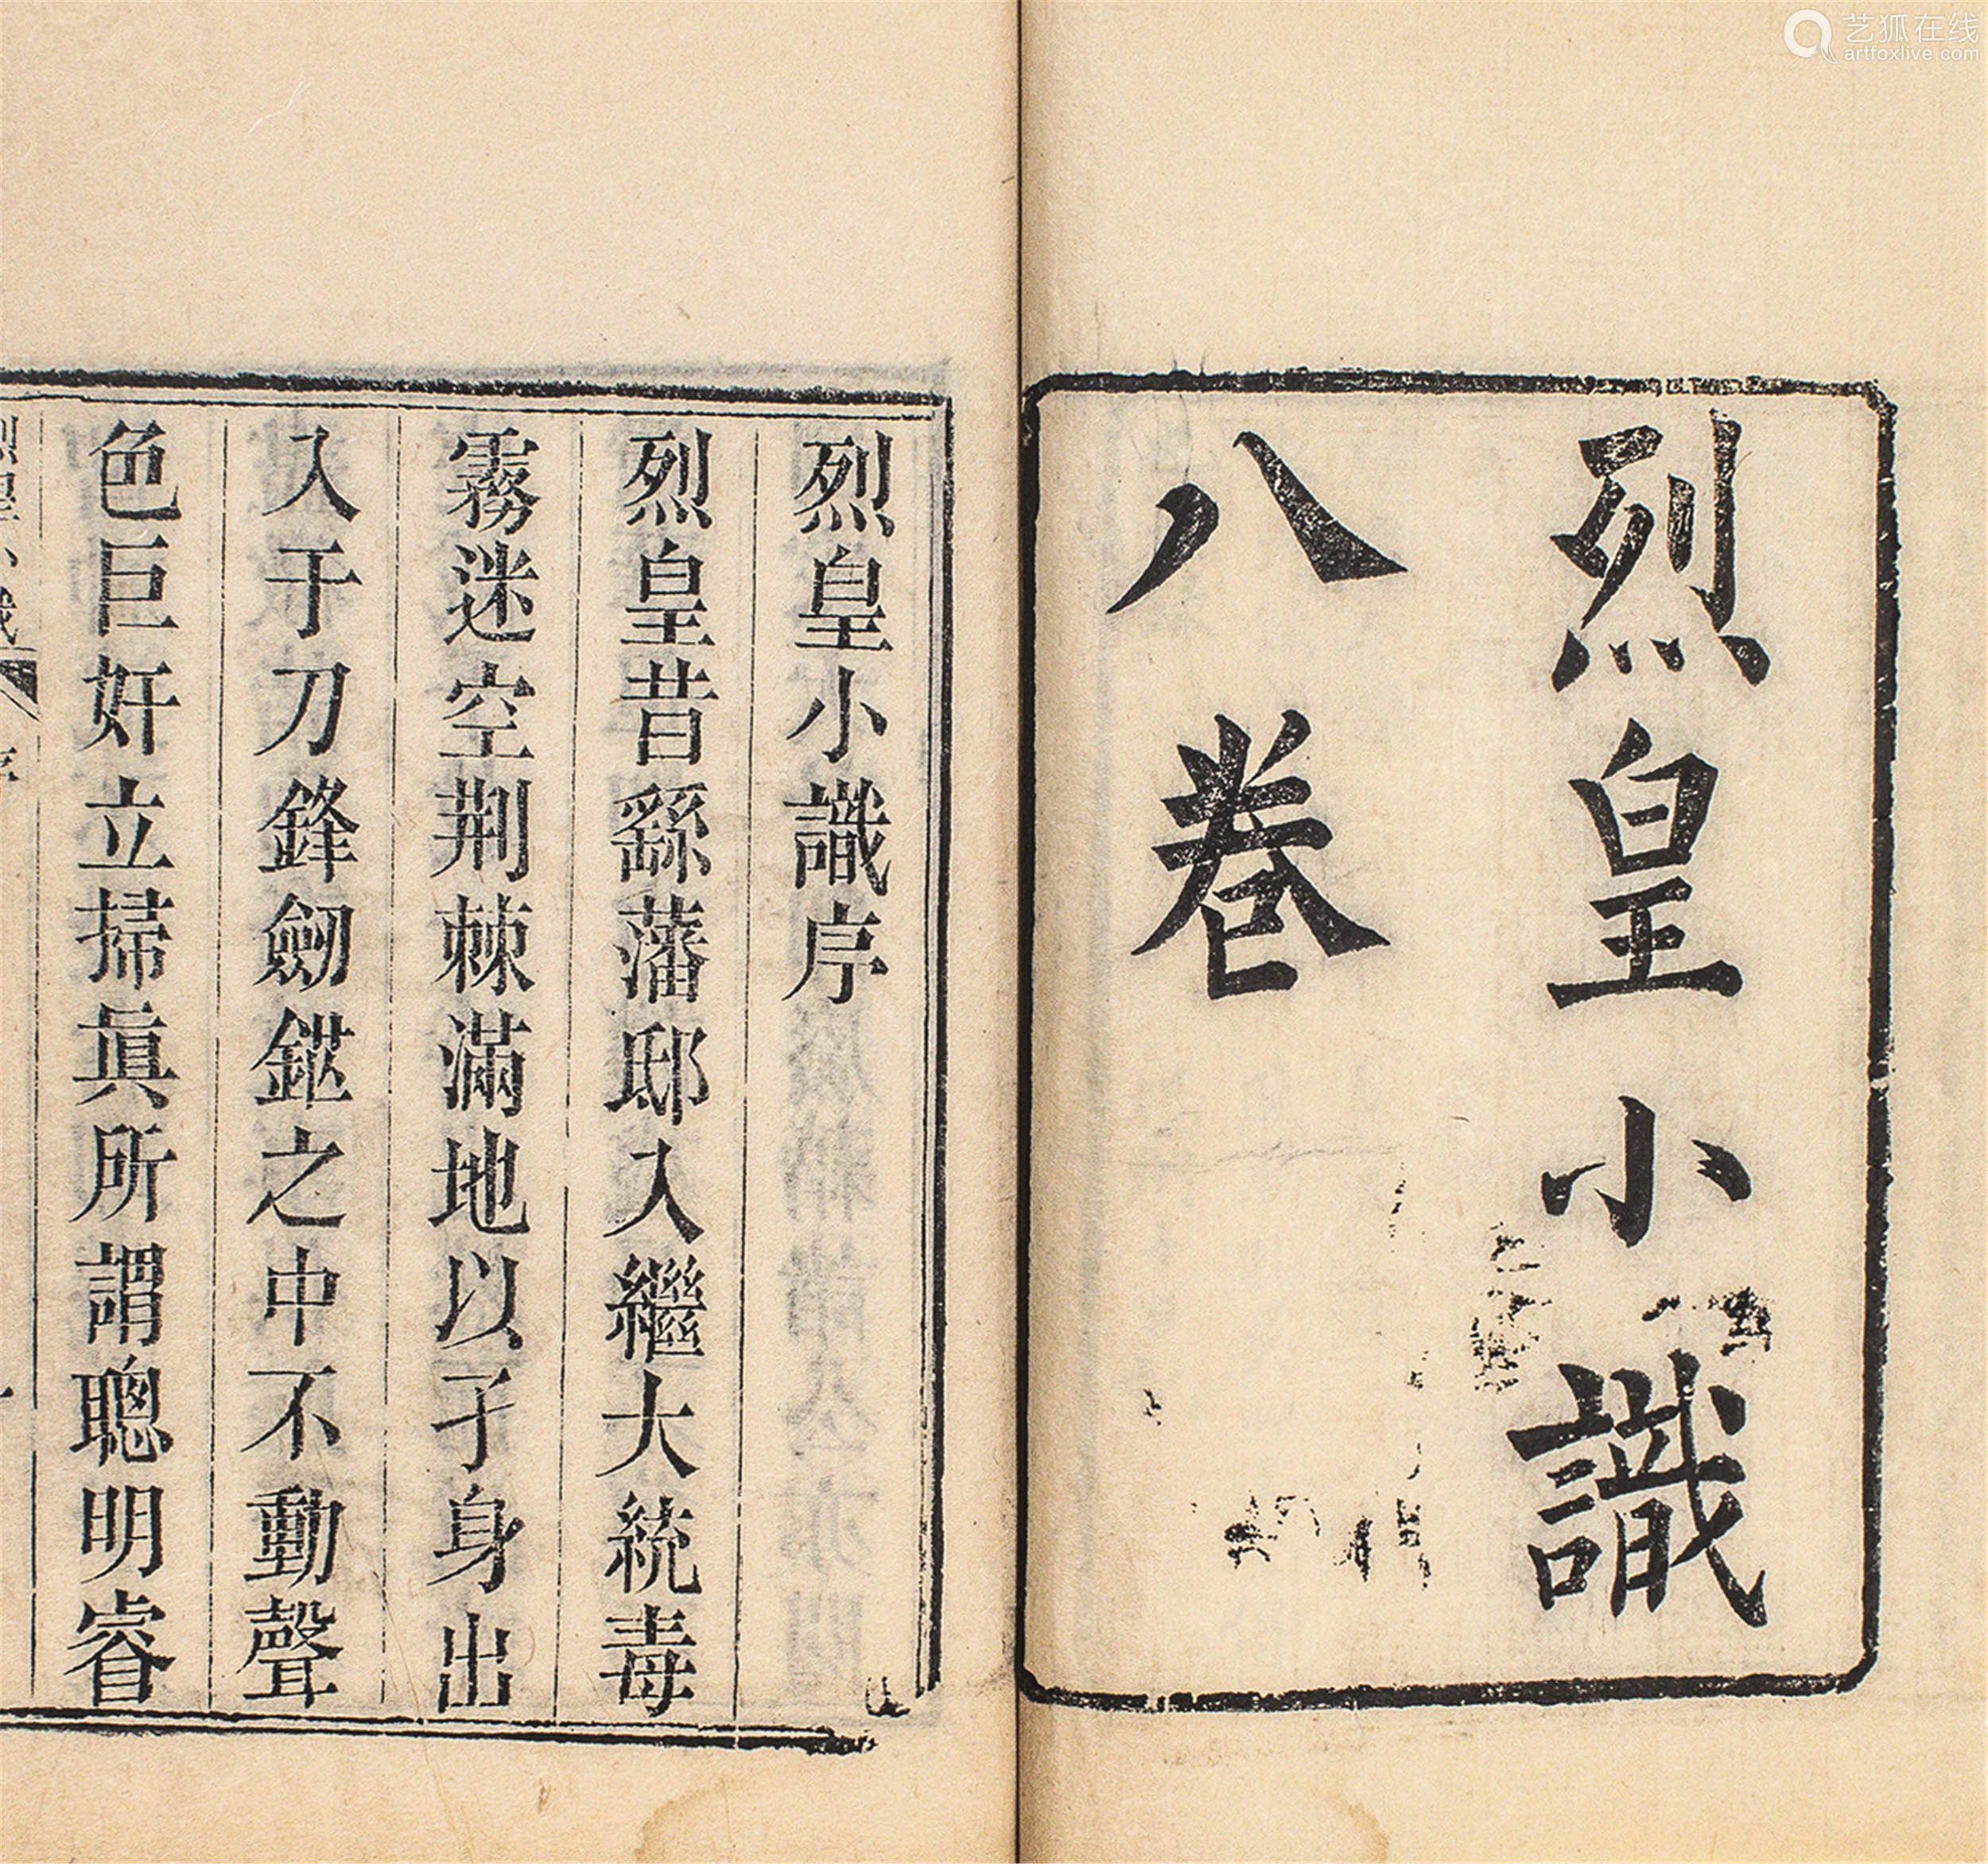 艺狐在线
artfoxlive.com
烈皇小識
八卷
烈皇小識序
烈皇昔繇藩邸入繼大統毒
霧迷空荆棘滿地以孑身出
入于刀鋒劒鋩之中不動聲
色巨奸立掃眞所謂聰明睿
烈皇小識 序